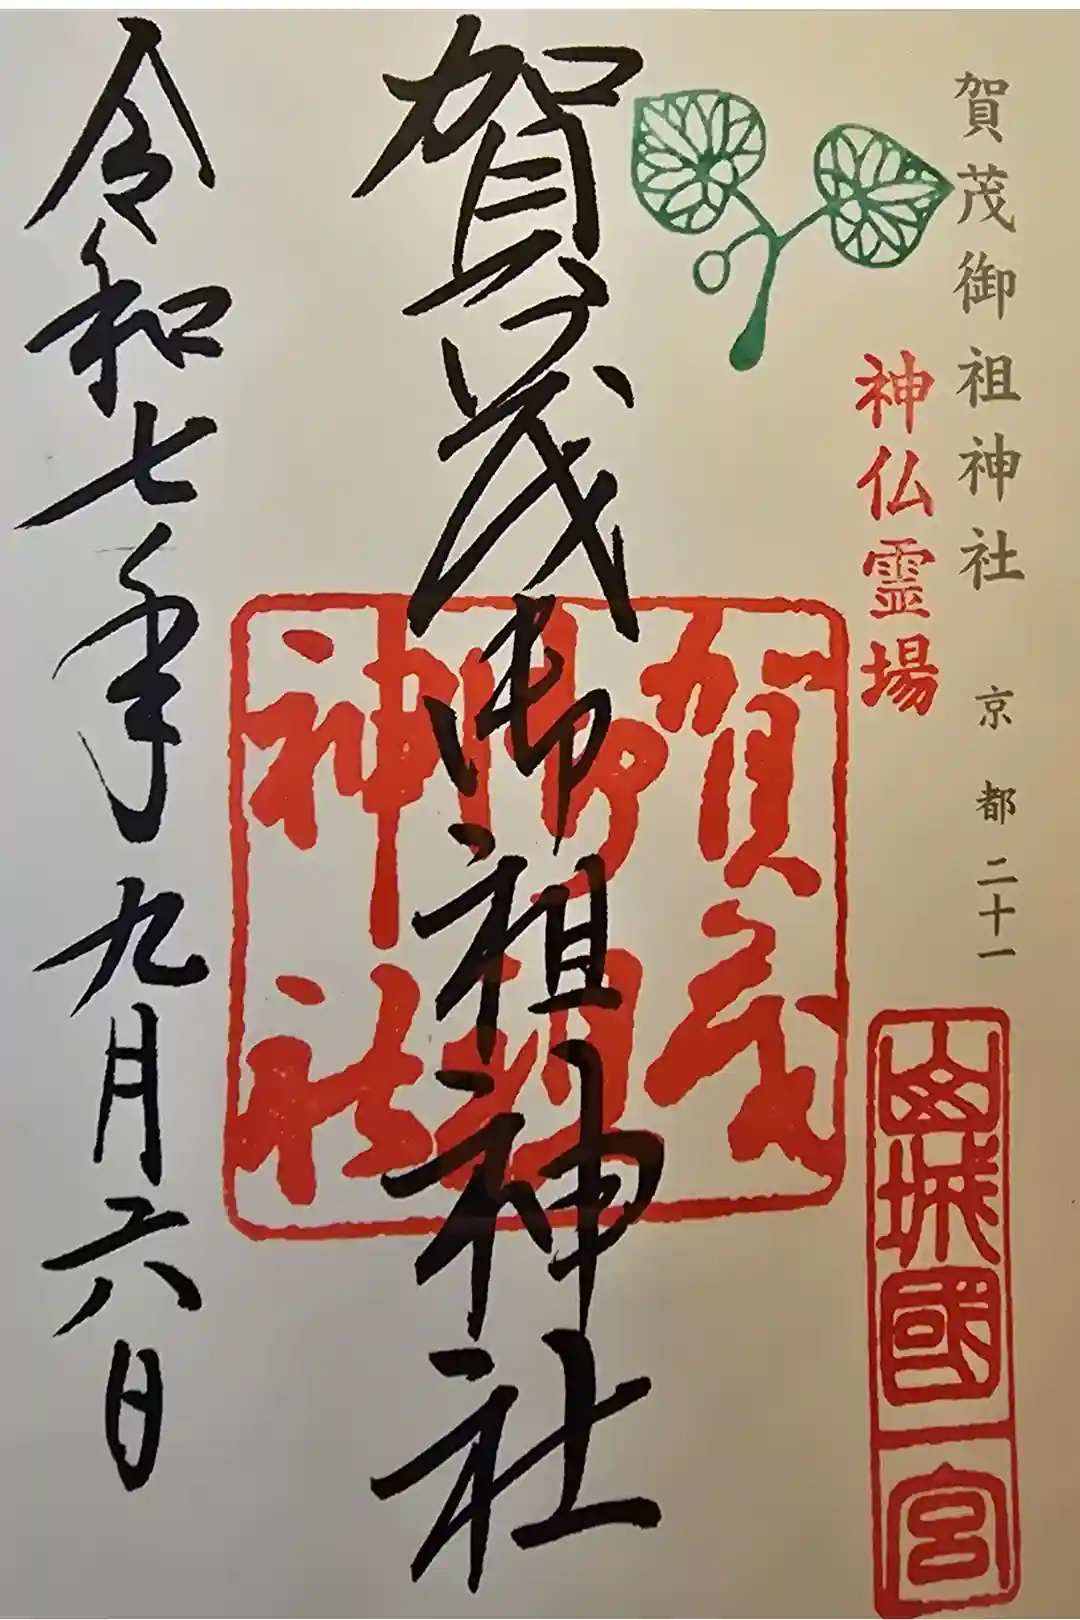 賀茂御祖神社　京都二十一
神仏霊場
山城國一宮
賀茂御祖神社
賀茂御祖神社
令和七年九月六日